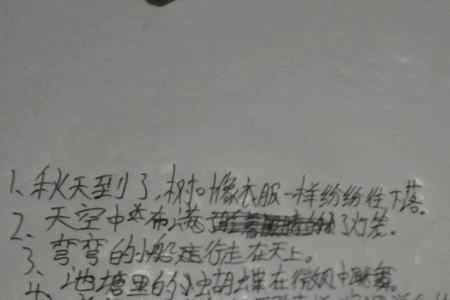 1、秋天到了,树叶像衣服一样纷纷往下落。
2、天空中布满了灯笼。
3、弯弯的小船行走在天上。
4、池塘里的小蝴蝶在微风中跳舞。